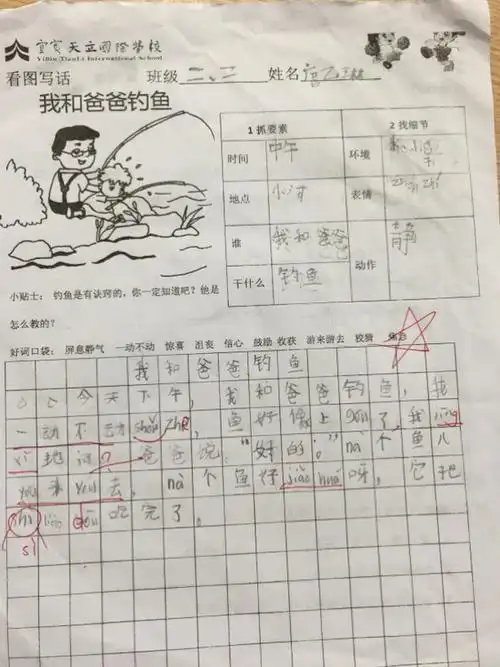 宜宾天立国际学校
Yibin TianLi International School
看图写话 班级 二、二 姓名
我和爸爸钓鱼
1 抓要素 2 找细节
时间 中午 环境
地点 小河 表情
谁 我和爸爸 动作 静
干什么 钓鱼
小贴士: 钓鱼是有诀窍的,你一定知道吧?他是
怎么教的?
好词口袋: 屏息静气 一动不动 惊喜 沮丧 信心 鼓励 收获 游来游去 狡猾
我和爸爸钓鱼
今天下午,我和爸爸钓鱼,我
一动不动 shǒu zhe,鱼好像上 gōu 了,我 jīng
xǐ 地说 爸爸说:“好的。”nà 个鱼儿
yóu 来 yóu 去,nà 个鱼好 jiǎo huá 呀,它把
shì dōu 吃完了。
sì